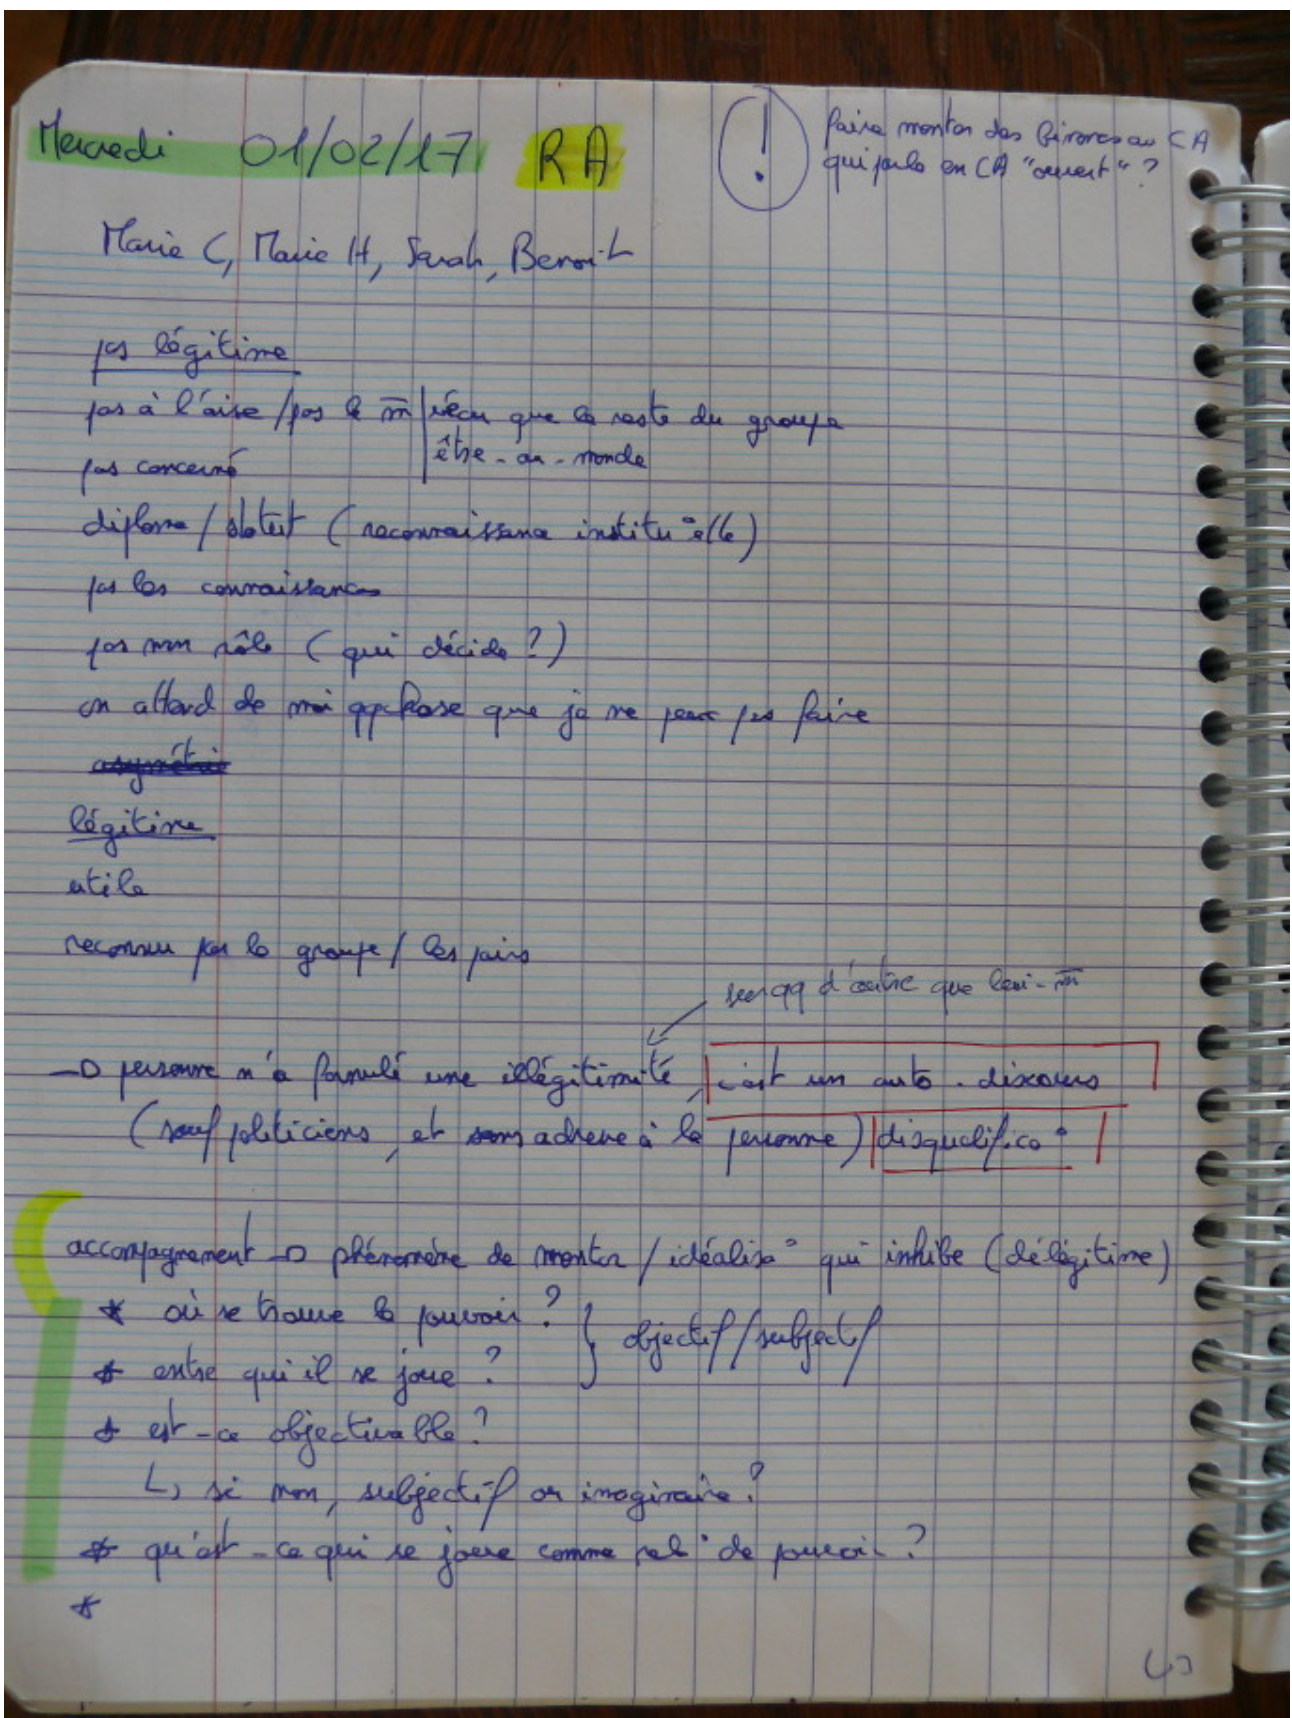 Mercredi 01/02/17 RA
! faire monter des binômes au CA
qui parle en CA "ouvert" ?
Marie C, Marie H, Sarah, Benoit
pas légitime
pas à l'aise / pas le m̄ vécu que le reste du groupe
être-au-monde
pas concerné
diplôme / statut (reconnaissance institu°elle)
pas les connaissances
pas mon rôle (qui décide ?)
on attend de moi qqchose que je ne peux pas faire
asymétrie
légitime
utile
reconnu par le groupe / les pairs
sur qq d'autre que lui-m̄
→ personne n'a formulé une illégitimité, c'est un auto-discours
(sauf politiciens, et sans adresse à la personne) disqualifica°
accompagnement → phénomène de mentor / idéalisa° qui inhibe (délégitime)
* où se trouve le pouvoir ? } objectif/subjectif
* entre qui il se joue ?
* est-ce objectivable ?
↳ si non, subjectif or imaginaire ?
* qu'est-ce qui se joue comme rel° de pouvoir ?
*